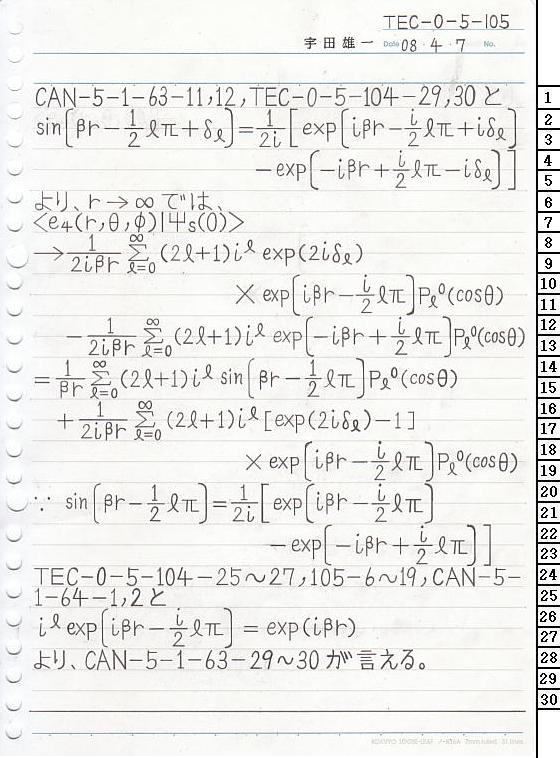 TEC-0-5-105
宇田雄一 Date 08・4・7 No.
CAN-5-1-63-11,12,TEC-0-5-104-29,30と
sin[βr-1/2ℓπ+δℓ]=1/2i[exp[iβr-i/2ℓπ+iδℓ]
-exp[-iβr+i/2ℓπ-iδℓ]]
より、r→∞では、
<e₄(r,θ,φ)|Ψs(0)>
→1/2iβr ∞Σℓ=0 (2ℓ+1)i^ℓ exp(2iδℓ)
×exp[iβr-i/2ℓπ]Pℓ⁰(cosθ)
-1/2iβr ∞Σℓ=0 (2ℓ+1)i^ℓ exp[-iβr+i/2ℓπ]Pℓ⁰(cosθ)
=1/βr ∞Σℓ=0 (2ℓ+1)i^ℓ sin[βr-1/2ℓπ]Pℓ⁰(cosθ)
+1/2iβr ∞Σℓ=0 (2ℓ+1)i^ℓ[exp(2iδℓ)-1]
×exp[iβr-i/2ℓπ]Pℓ⁰(cosθ)
∵ sin[βr-1/2ℓπ]=1/2i[exp[iβr-i/2ℓπ]
-exp[-iβr+i/2ℓπ]]
TEC-0-5-104-25~27,105-6~19,CAN-5-
1-64-1,2と
i^ℓ exp[iβr-i/2ℓπ]=exp(iβr)
より、CAN-5-1-63-29~30が言える。
1
2
3
4
5
6
7
8
9
10
11
12
13
14
15
16
17
18
19
20
21
22
23
24
25
26
27
28
29
30